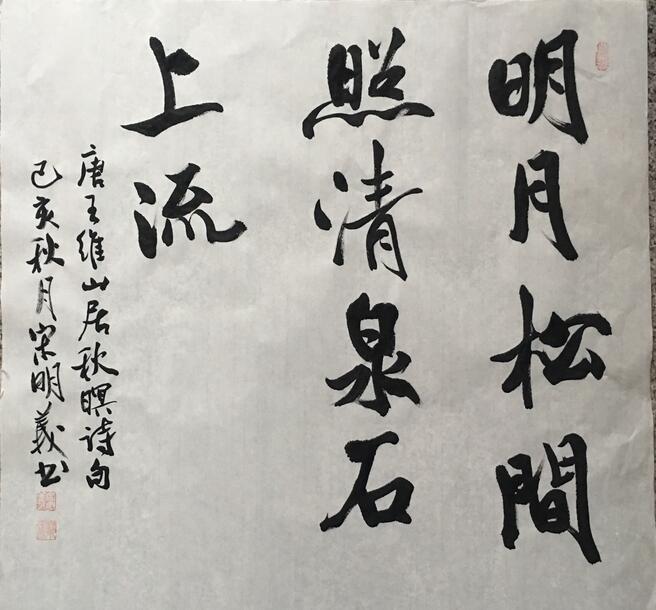 明月松間
照清泉石
上流
唐王維山居秋暝诗句
己亥秋月宋明義书